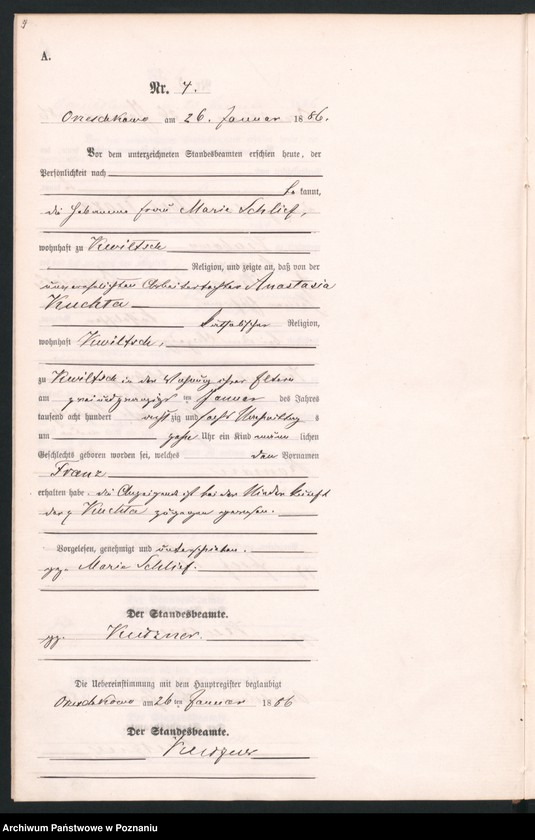 A.
Nr. 4.
Orzeschkowo am 26. Januar 1886.
Vor dem unterzeichneten Standesbeamten erschien heute, der
Persönlichkeit nach
bekannt,
die Hebamme Frau Marie Schlief,
wohnhaft zu Kwiltsch
Religion, und zeigte an, daß von der
unverehelichten Arbeitertochter Anastasia
Kuchta
katholischer Religion,
wohnhaft Kwiltsch,
zu Kwiltsch in der Wohnung ihrer Eltern
am ten Januar des Jahres
tausend acht hundert achtzig und sechs Nachmittags
um Uhr ein Kind männlichen
Geschlechts geboren worden sei, welches den Vornamen
Franz
erhalten habe, die Anzeigende ist bei der Niederkunft
der p Kuchta zugegen gewesen.
Vorgelesen, genehmigt und unterschrieben.
gz. Marie Schlief.
Der Standesbeamte.
gz.
Die Uebereinstimmung mit dem Hauptregister beglaubigt
Orzeschkowo am 26ten Januar 1886
Der Standesbeamte.
Archiwum Państwowe w Poznaniu